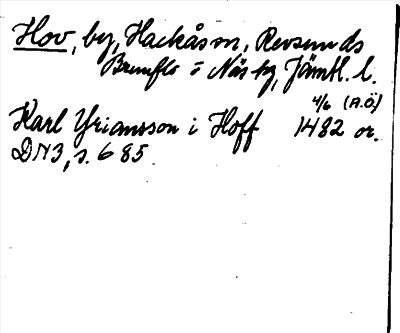 Hov, by, Hackås sn, Revsunds
Brunflo o Näs tg, Jämtl. l.
4/6 (A.Ö.)
Karl Yriansson i Hoff 1482 or.
DN3, s. 685.